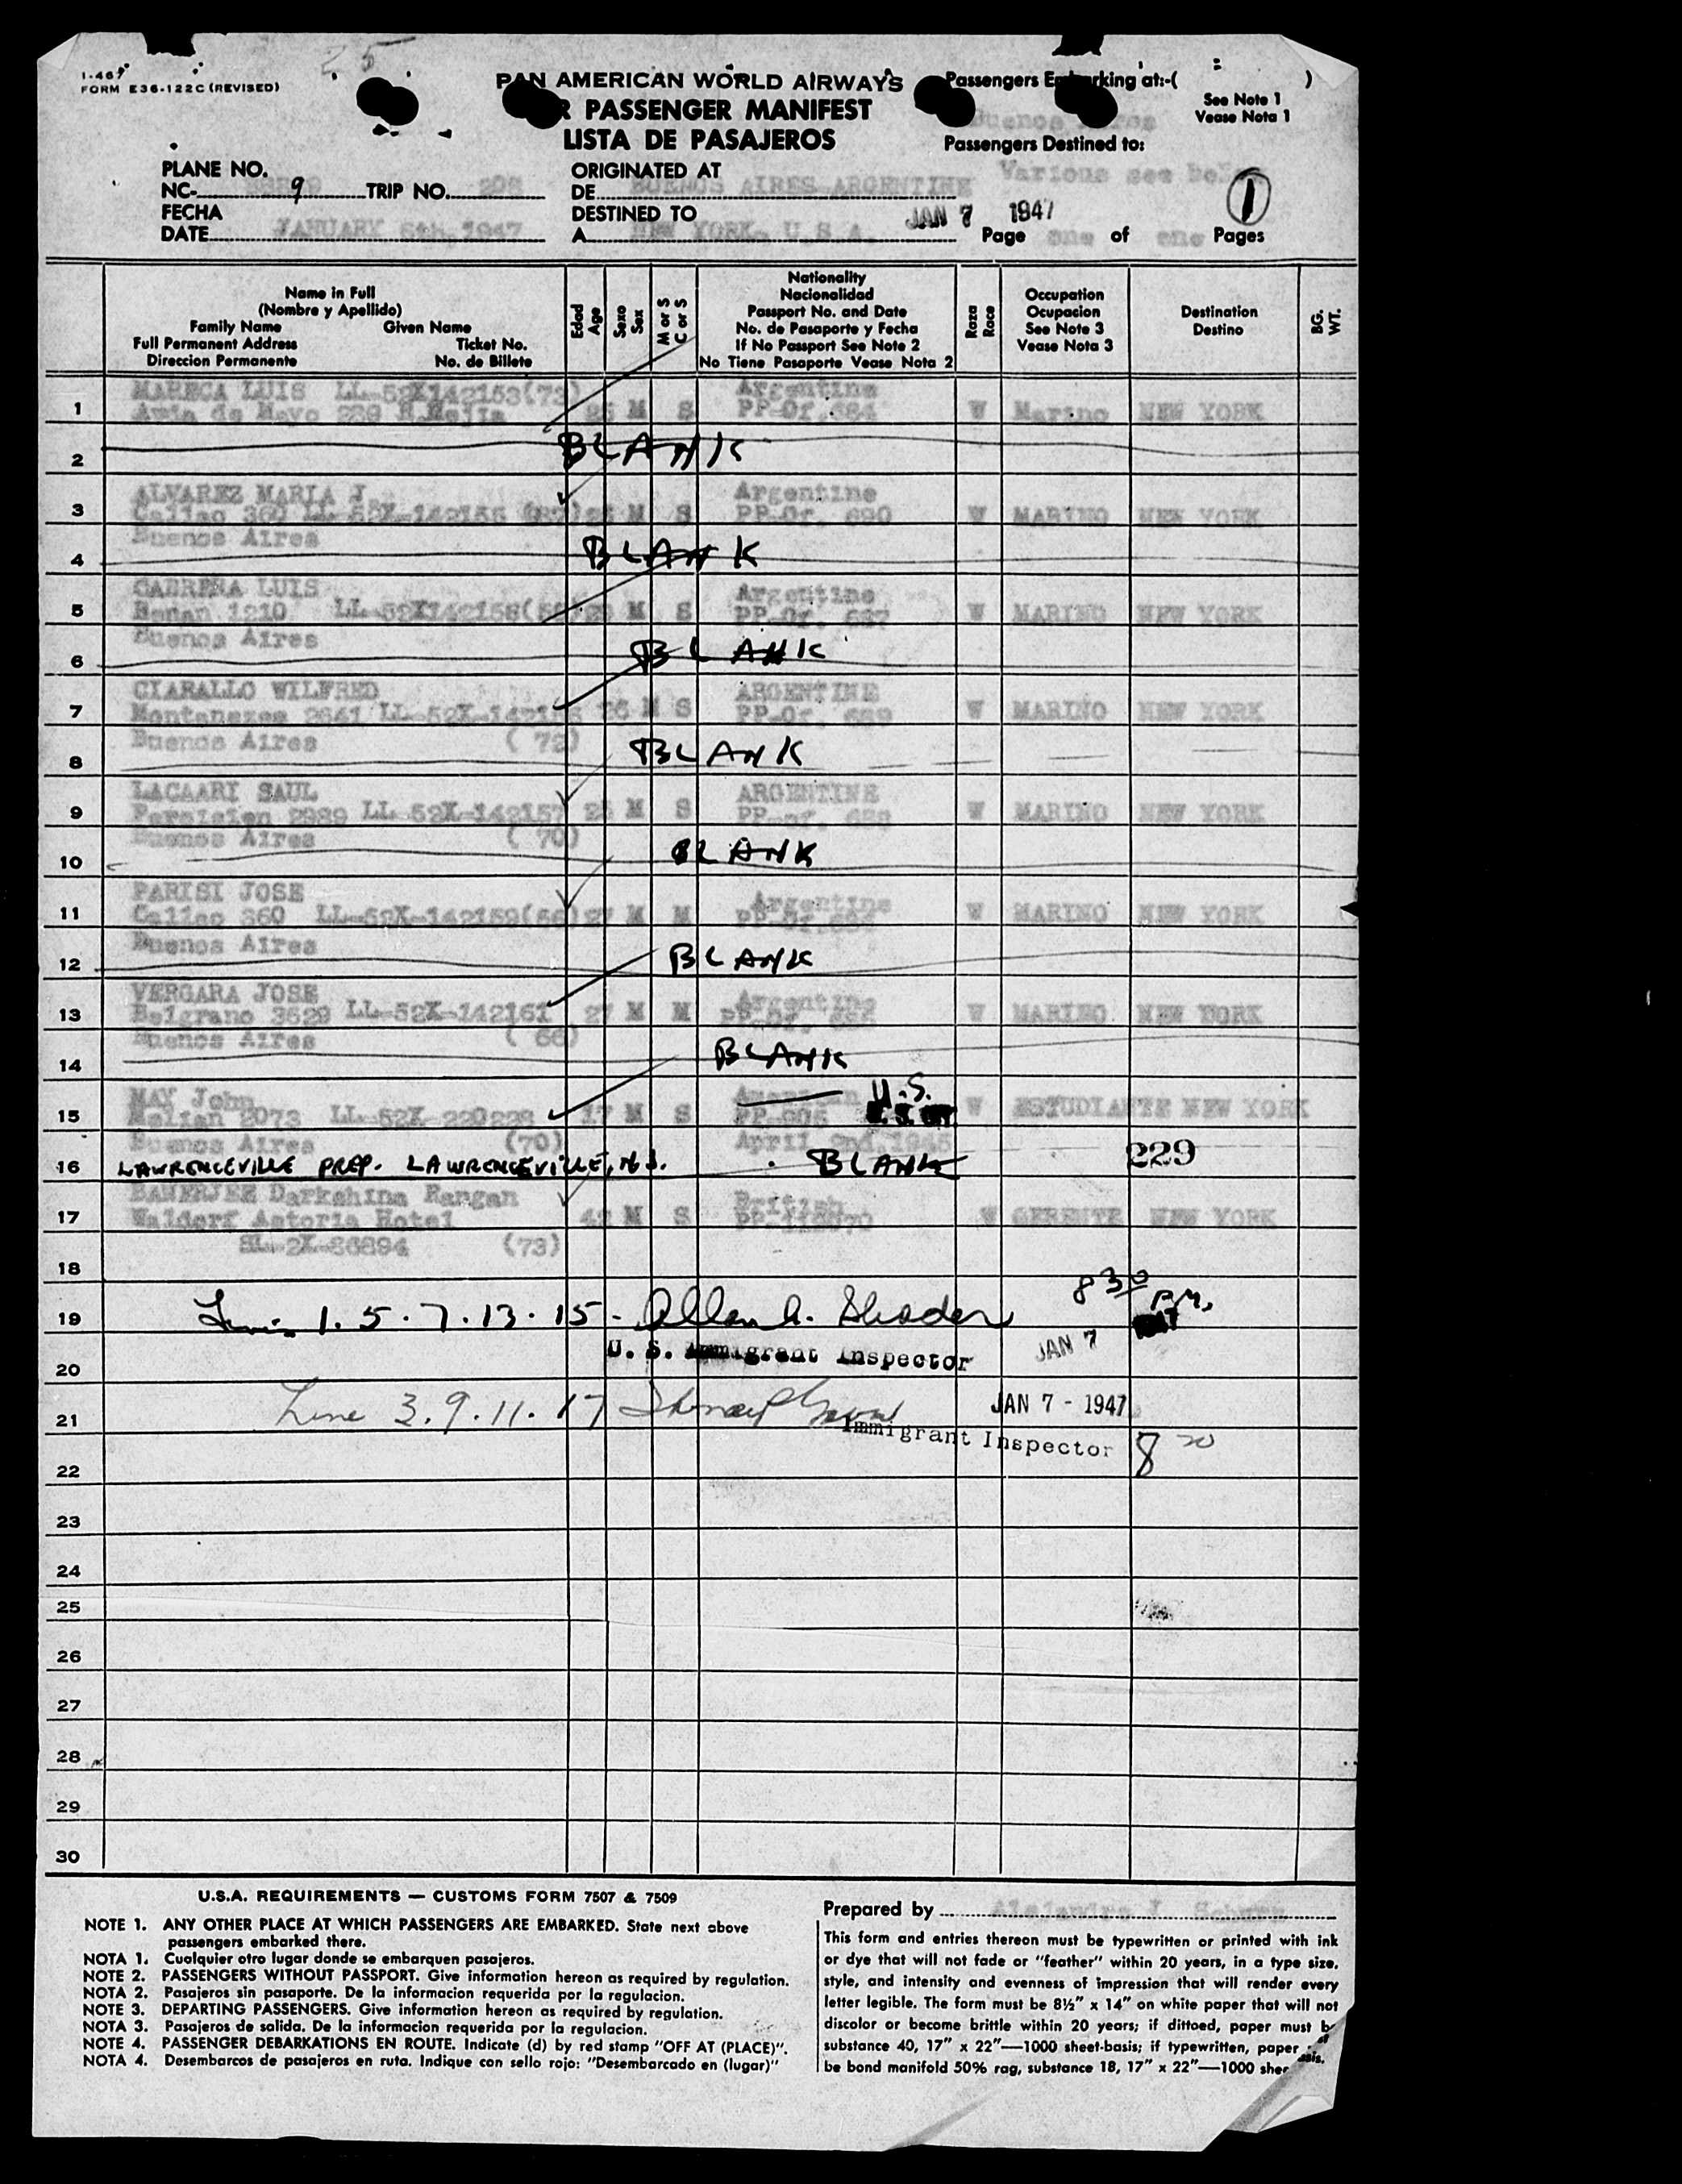 25
I-467
FORM E36-122C (REVISED)
PAN AMERICAN WORLD AIRWAYS
PASSENGER MANIFEST
LISTA DE PASAJEROS
Passengers Embarking at:-( )
See Note 1
Vease Nota 1
Buenos Aires
Passengers Destined to:
Various see
PLANE NO.
NC- 9 TRIP NO. 202
FECHA
DATE JANUARY 6th, 1947
ORIGINATED AT
DE BUENOS AIRES ARGENTINE
DESTINED TO
A NEW YORK- U.S.A.
JAN 7 1947
1
Page one of one Pages
Name in Full
(Nombre y Apellido)
Family Name Given Name
Full Permanent Address Ticket No.
Direccion Permanente No. de Billete
Edad
Age
Sexo
Sex
M or S
C or S
Nationality
Nacionalidad
Passport No. and Date
No. de Pasaporte y Fecha
If No Passport See Note 2
No Tiene Pasaporte Vease Nota 2
Raza
Race
Occupation
Ocupacion
See Note 3
Vease Nota 3
Destination
Destino
BG.
WT.
MARECA LUIS LL-52X142153(73) Argentine
1 Avia de Mayo 239 R.Mejia 25 M S PP-Of.684 W Marino NEW YORK
2 BLANK
ALVAREZ MARIA J Argentine
3 Callao 360 LL-52X-142155 M S PP-Of. 690 W MARINO NEW YORK
Buenos Aires
4 BLANK
CABRERA LUIS Argentine
5 1210 LL-52X142158 29 M S PP-Of. 687 W MARINO NEW YORK
Buenos Aires
6 BLANK
CIARALLO WILFRED ARGENTINE
7 2641 26 M S PP-Of. 689 W MARINO NEW YORK
Buenos Aires (72)
8 BLANK
LACAARI SAUL ARGENTINE
9 2989 LL-52X-142157 25 M S PP-Of. 688 W MARINO NEW YORK
Buenos Aires (70)
10 BLANK
PARISI JOSE Argentine
11 Callao 360 LL-52X-142159(66) 27 M M W MARINO NEW YORK
Buenos Aires
12 BLANK
VERGARA JOSE Argentine
13 Belgrano 3629 LL-52X-142161 27 M M W MARINO NEW YORK
Buenos Aires (66)
14 BLANK
MAY John American U.S.
15 Melian 2073 LL-52X-220228 17 M S W ESTUDIANTE NEW YORK
Buenos Aires (70) April 2nd, 1945
16 LAWRENCEVILLE PREP. LAWRENCEVILLE, N.J. BLANK 229
BANERJEE Darkshina Rangan British
17 Waldorf Astoria Hotel 42 M S W GERENTE NEW YORK
SL-2X-86894 (73)
18
8 30 P.M.
19 1. 5. 7. 13. 15 - Allan A. Shader
20 U. S. Immigrant Inspector JAN 7
21 Line 3. 9. 11. 17 JAN 7 - 1947
Immigrant Inspector 8 20
22
23
24
25
26
27
28
29
30
U.S.A. REQUIREMENTS — CUSTOMS FORM 7507 & 7509
NOTE 1. ANY OTHER PLACE AT WHICH PASSENGERS ARE EMBARKED. State next above
passengers embarked there.
NOTA 1. Cualquier otro lugar donde se embarquen pasajeros.
NOTE 2. PASSENGERS WITHOUT PASSPORT. Give information hereon as required by regulation.
NOTA 2. Pasajeros sin pasaporte. De la informacion requerida por la regulacion.
NOTE 3. DEPARTING PASSENGERS. Give information hereon as required by regulation.
NOTA 3. Pasajeros de salida. De la informacion requerida por la regulacion.
NOTE 4. PASSENGER DEBARKATIONS EN ROUTE. Indicate (d) by red stamp "OFF AT (PLACE)".
NOTA 4. Desembarcos de pasajeros en ruta. Indique con sello rojo: "Desembarcado en (lugar)"
Prepared by Alejandro J.
This form and entries thereon must be typewritten or printed with ink
or dye that will not fade or "feather" within 20 years, in a type size,
style, and intensity and evenness of impression that will render every
letter legible. The form must be 8½" x 14" on white paper that will not
discolor or become brittle within 20 years; if dittoed, paper must
substance 40, 17" x 22"—1000 sheet-basis; if typewritten, paper
be bond manifold 50% rag, substance 18, 17" x 22"—1000